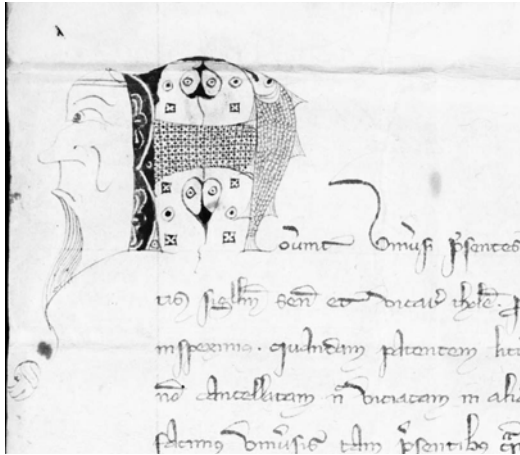 Nouint vniusi p̄sentes
tis sigillm̄ sen̄ et vicar̄ thol̄
inspeximus · quandam patentem litt
nō cancellatam n̄ viciatam in alia
facimus vniusis tam p̄sentibus